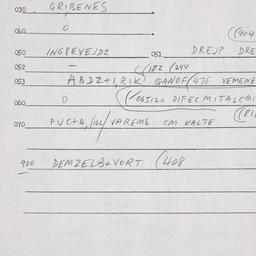 030 GRIBENES
040 0 ((904
050 INGREVEJDZ 051 DREJP DRE
052 — ((182 (244
053 ABDZ+1, RIK QANOF (476 VEMENE
060 0 (065120 DIFECMITALCMI
070 PUC+A, /162/ VAREME CM KALTE ((81
900 DEMZELB+VORT (408